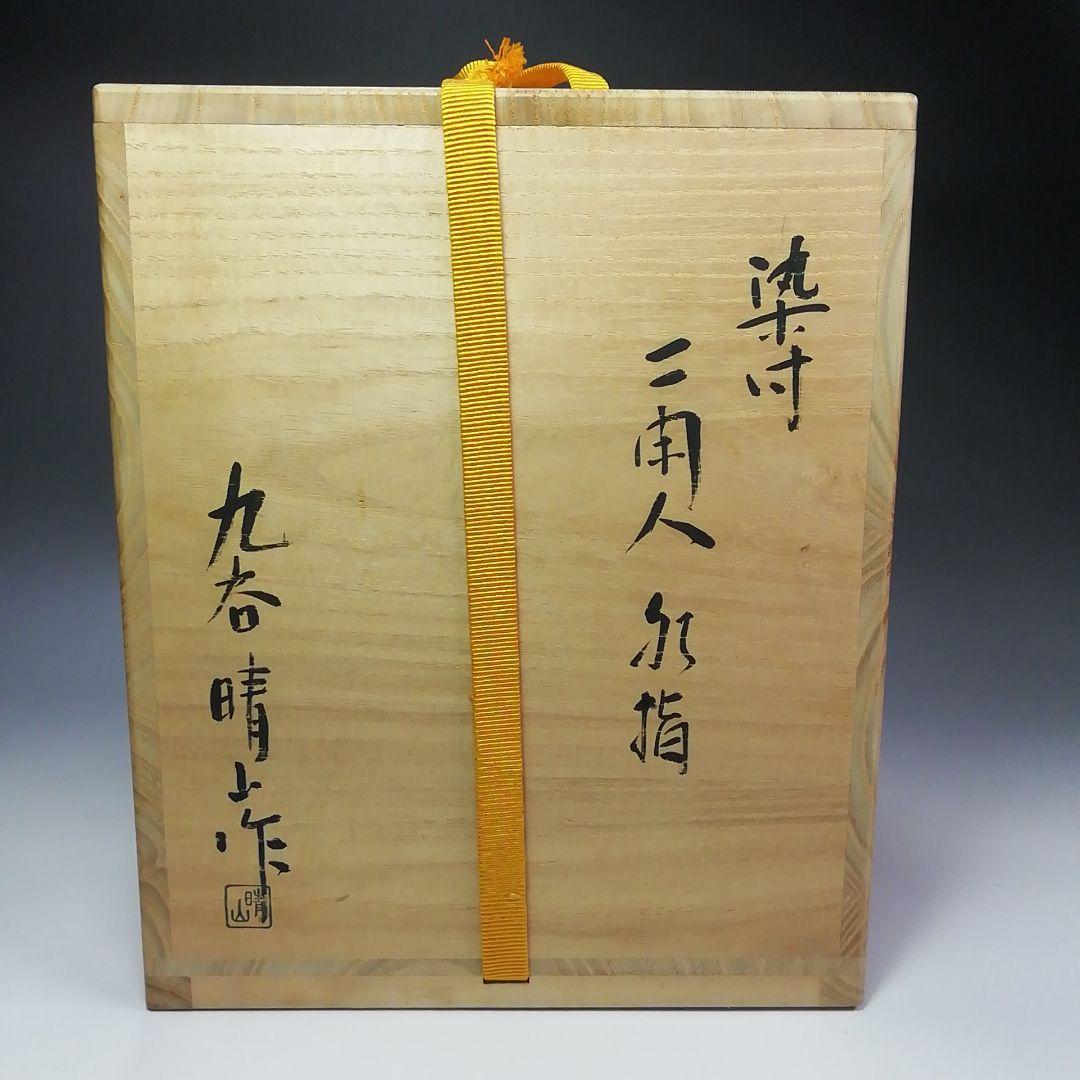 染付
二閑人 水指
九谷 晴山作
晴山